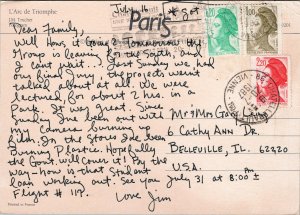 L'Arc de Triomphe
July 16
Paris
Dear Family,
Well How's it going? Tomorrow my
group is leaving for the South, and
I can't wait. Last Sunday we had
our final Jury. The projects weren't
talked about at all. We were
lectured, for about 2 hours in a
Park. It was great. Since
Sunday I've been out with
my camera burning up
film. On the Stove I've been
Burning Plastic. Hopefully
the Govt. will cover it! By the
way - how is that student
loan working out. See you July 31 at 8:00 pm
Flight # 117.
Love Jim
Mr + Mrs
6 Cathy Ann Dr.
BELLEVILLE, IL 62220
U.S.A.
2.20
2.20
Printed in France